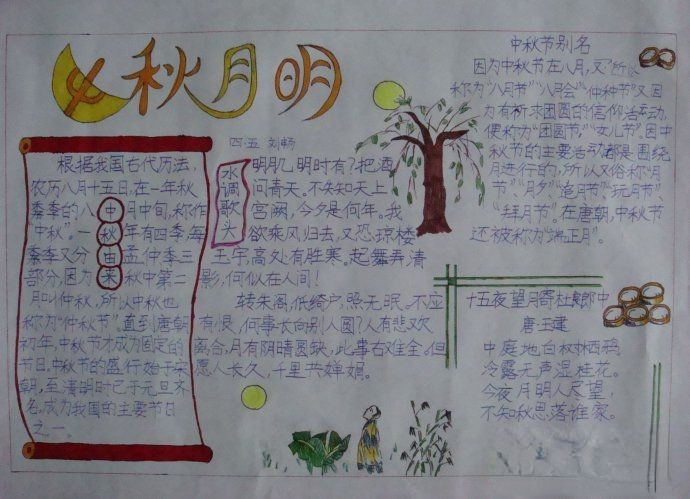 中秋月明
四·五 刘畅
根据我国古代历法，
农历八月十五日，在一年秋
季的八月中旬，称作
"中秋"。一年有四季，每
季又分孟仲季三
部分，因为秋中第二
月叫仲秋，所以中秋也
称为"仲秋节"。直到唐朝
初年，中秋节才成为固定的
节日。中秋节的盛行始于宋
朝，至清明时已于元旦齐
名，成为我国的主要节日
之一。
中秋由来
水调歌头
明月几明时有？把酒
问青天。不知知天上
宫阙，今夕是何年。我
欲乘风归去，又恐琼楼
玉宇，高处有胜寒。起舞弄清
影，何似在人间！
转朱阁，低绮户，照无眠。不应
有恨，何事长向别人圆？人有悲欢
离合，月有阴晴圆缺，此事古难全。但
愿人长久，千里共婵娟。
中秋节别名
因为中秋节在八月，又所以
称为"八月节""八月会""仲秋节"又因
为有祈求团圆的信仰活动，
便称为"团圆节""女儿节"。因中
秋节的主要活动都是围绕
月进行的，所以又俗称"月
节""月夕""追月节""玩月节"、
"拜月节"。在唐朝，中秋节
还被称为"端正月"。
十五夜望月寄杜郎中
唐·王建
中庭地白树栖鸦，
冷露无声湿桂花。
今夜月明人尽望，
不知秋思落谁家。